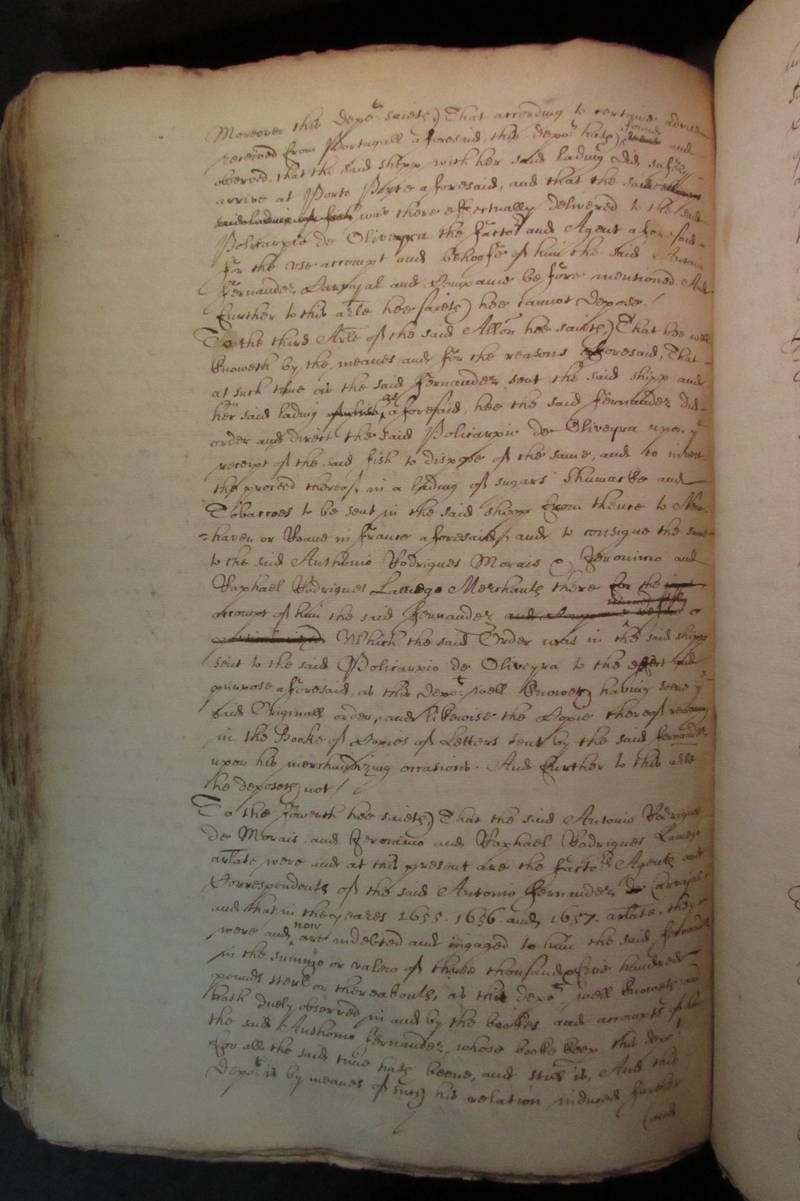 Moreover this depot saieth That according to certaine advice
received from Portugall aforesaid, this depot hath and
observed, that the said shipp with her said lading did safely
arrive at Porto Porte aforesaid, and that the said
said lading of fish was there effectually delivered to the said
Policarpio de Oliveyra the factor and Agent aforesaid
for the use accompt and behoofe of him the said Antonio
Fernandez Carvajal and Companie before mentioned And
further to this arle hee saieth hee cannot depose./
To the third Arle of the said Allon hee saieth That hee well
knoweth by the meanes and for the reasons aforesaid, That
at such time as the said Fernandez sent the said shipp and
her said lading as aforesaid, hee the said Fernandez did
order and direct the said Policarpio de Oliveyra upon ye
receipt of the said fish to dispose of the same, and to invest
the proceed thereof in a lading of sugars Shumacke and
Tobaccoes to be sent in the said shipp from thence to New
=haven or Roane in France aforesaid, and to consigne the same
to the said Anthonio Rodrigues Morais & Jeronimo and
Raphael Rodrigues Lamego Merchants there for the
accompt of him the said Fernandez and or
Which the said Order was in the said shipp
sent to the said Policarpio de Oliveyra to the effect and
purpose aforesaid, as this depot well knoweth having seene ye
said Originall order, and likewise the Copie thereof remaining
in the Booke of Copies of Letters sent by the said Fernandez
upon his merchandizing occasions. And further to this arle
he deposeth not/
To the fowerth hee saieth That the said Antonio Rodrigues
de Morais and Jeronimo and Raphael Rodrigues Lamego
arlate were and at this present are the factors Agents and
Correspondents of the said Antonio Fernandez Carvajal
and that in the yeares 1655. 1656. and 1657. arlate, they
were and now are indebted and ingaged to him the said Fernandez
in the summe or valew of three thousand five hundred
pounds sterl or thereabouts, as this depot well knoweth and
hath duely observed in and by the bookes and accompts of him
the said Anthonio Fernandez, whose booke keeper this depot
for all the said time hath beene, and still is, And this
Depot is by meanes of such his relation induced further
(and